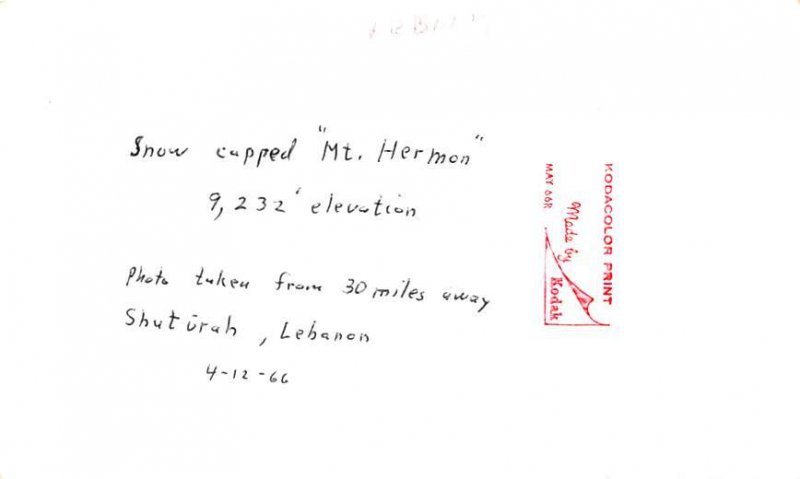 Snow capped "Mt. Hermon"
9,232' elevation
Photo taken from 30 miles away
Shutūrah, Lebanon
4-12-66
KODACOLOR PRINT
Made by
Kodak
MAY 66R